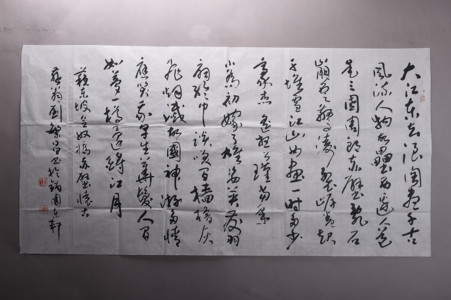 大江东去浪淘尽千古
风流人物故垒西边人道
是三国周郎赤壁乱石
崩云惊涛裂岸卷起
千堆雪江山如画一时多少
豪杰遥想公瑾当年
小乔初嫁了雄姿英发羽
扇纶巾谈笑间樯橹灰
飞烟灭故国神游多情
应笑我早生华发人间
如梦一尊还酹江月
苏东坡念奴娇赤壁怀古